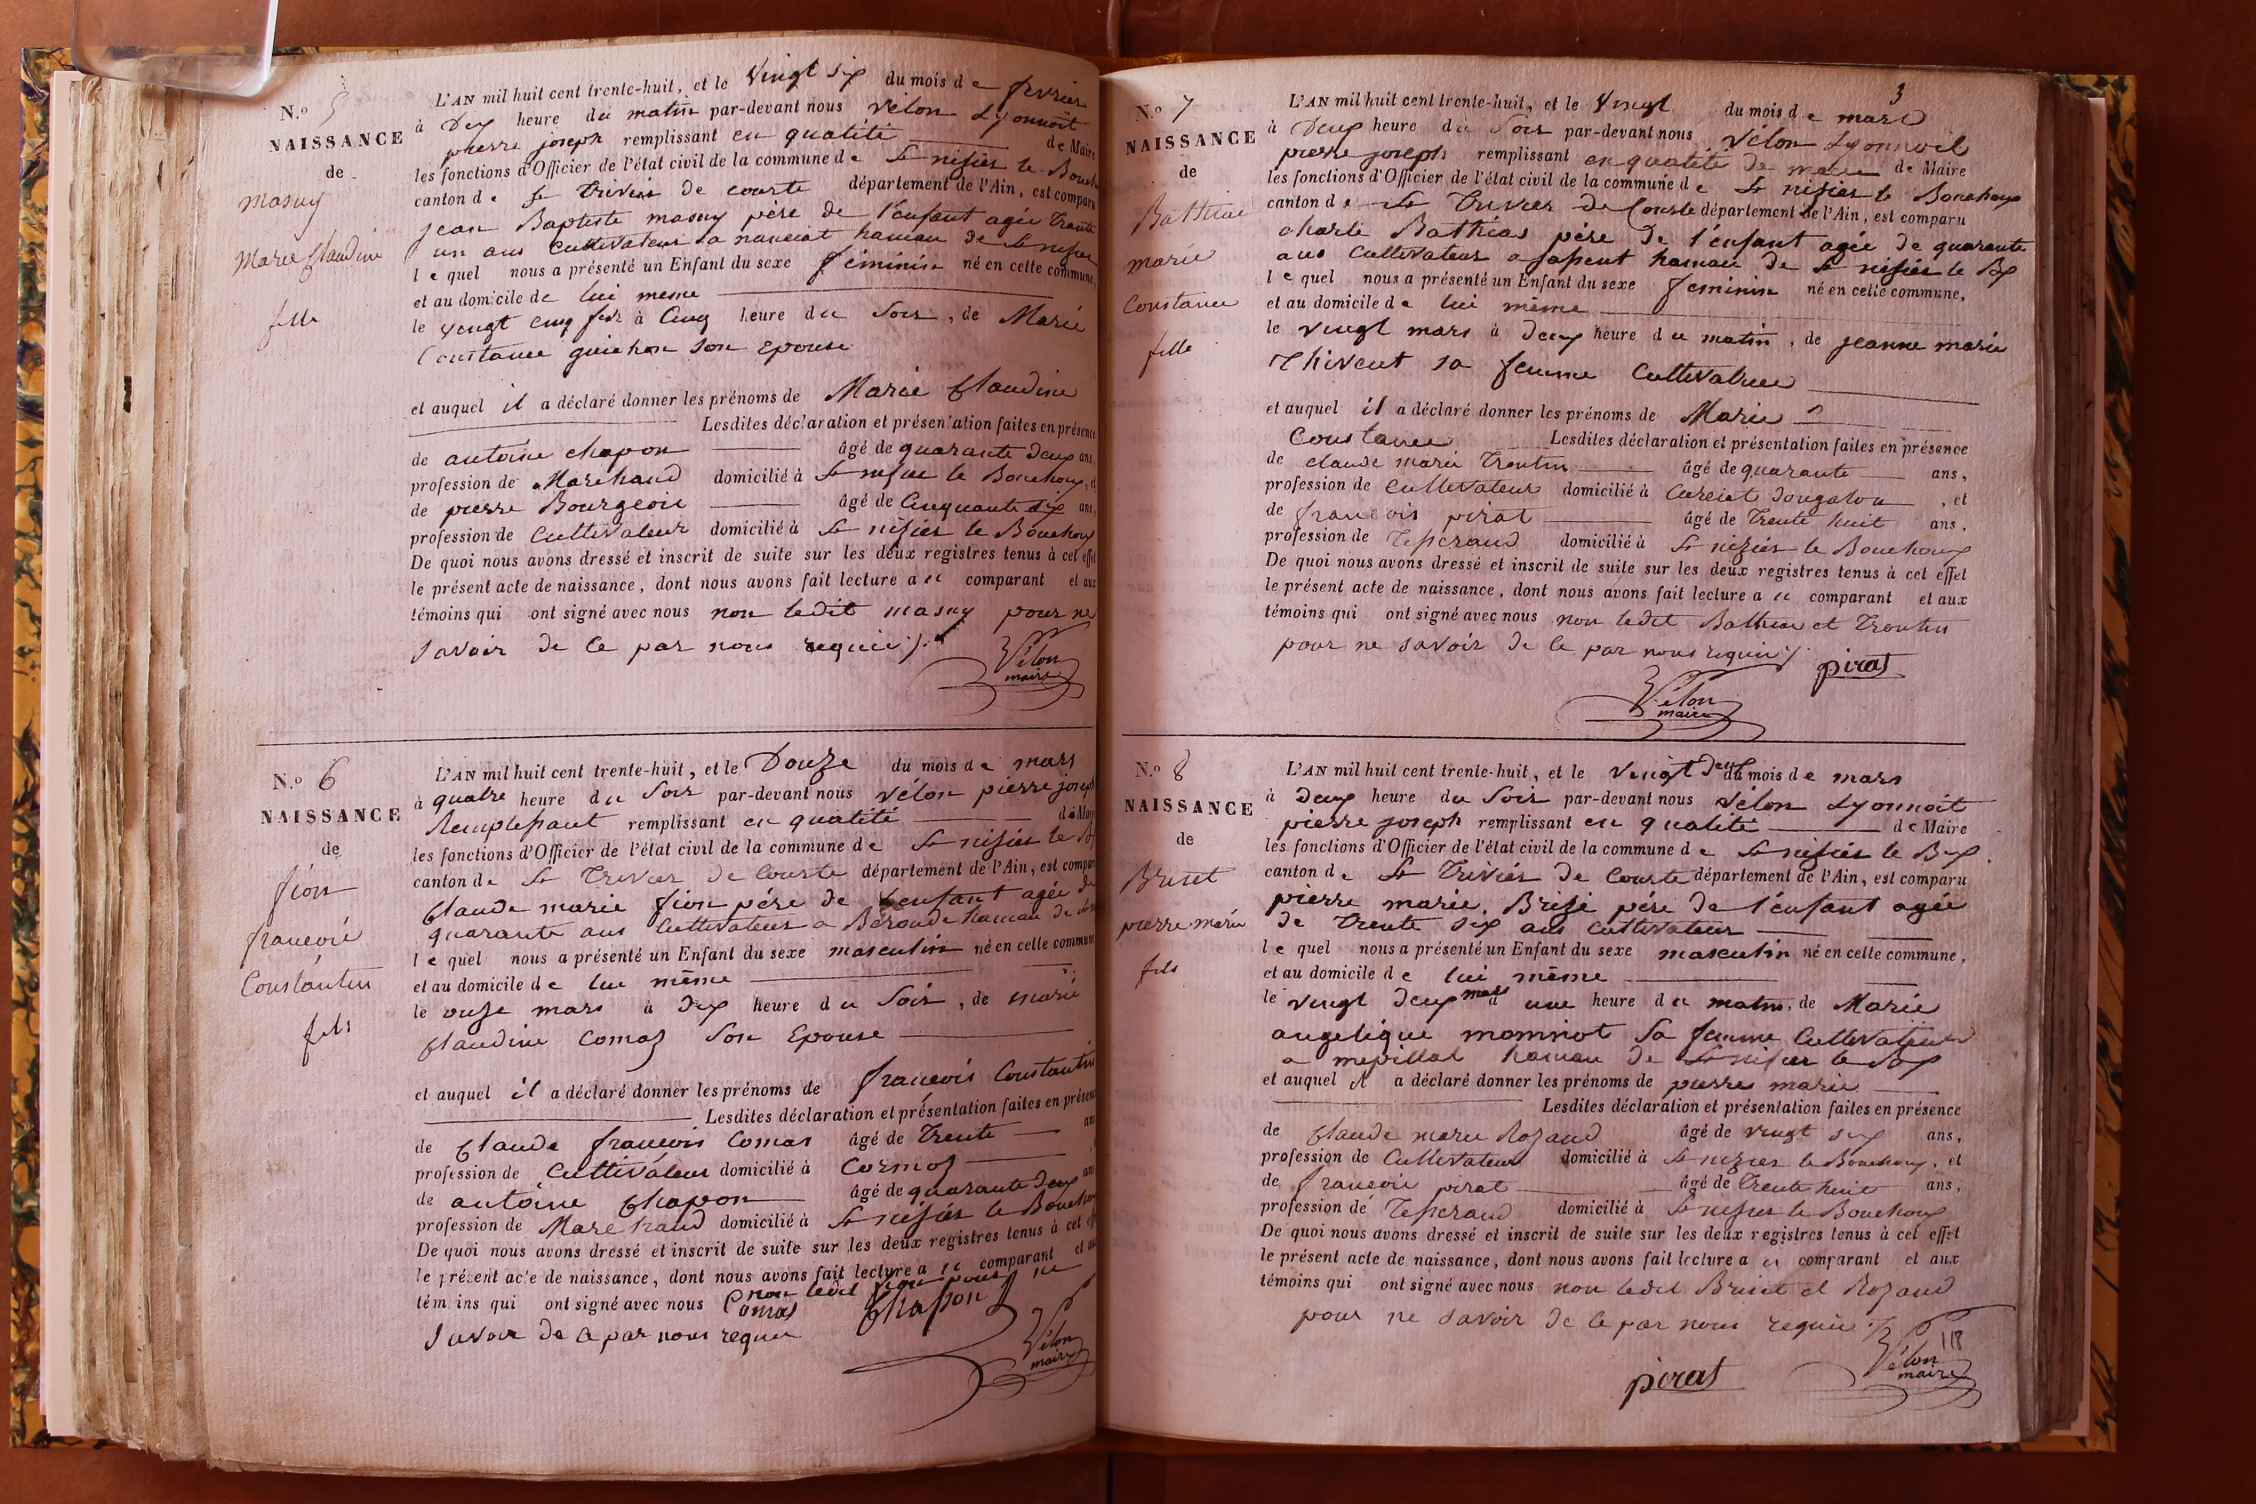 N.o 5
NAISSANCE
de
Masuy
Marie Claudine
fille
L'AN mil huit cent trente-huit, et le Vingt six du mois de fevrier
à Dex heure du matin par-devant nous Vélon Lyonnoit
pierre joseph remplissant en qualité de Maire
les fonctions d'Officier de l'état civil de la commune de St nisier le Bouch
canton de St Trivier de courte département de l'Ain, est comparu
jean Baptiste masuy père de l'enfant agée Trante
un ans Cultivateur a hameau de St nisier
lequel nous a présenté un Enfant du sexe féminin né en cette commune,
et au domicile de lui mesme
le vengt cinq à Cinq heure du Soir, de Marie
Constance guichon son epouse
et auquel il a déclaré donner les prénoms de Marie Claudine
Lesdites déclaration et présentation faites en présence
de antoine chapon âgé de quarante deux ans,
profession de Marchand domicilié à St nisier le Bouchoux, et
de pierre Bourgeois âgé de Cinquante dix ans,
profession de cultivateur domicilié à St nisier le Bouchoux
De quoi nous avons dressé et inscrit de suite sur les deux registres tenus à cet effet
le présent acte de naissance, dont nous avons fait lecture au comparant et aux
témoins qui ont signé avec nous non ledit masuy pour ne
savoir de ce par nous requis
Vélon
maire
N.o 6
NAISSANCE
de
fion
françois
Constantin
fils
L'AN mil huit cent trente-huit, et le Douze du mois de mars
à quatre heure du Soir par-devant nous vélon pierre joseph
Remplessant remplissant en qualité de Maire
les fonctions d'Officier de l'état civil de la commune de St nisier le Bx
canton de St Trivier de Courte département de l'Ain, est comparu
Claude marie fion père de l'enfant agée de
quarante ans Cultivateur a Béroude hameau de
lequel nous a présenté un Enfant du sexe masculin né en cette commune
et au domicile de lui même
le onze mars à dex heure du Soir, de marie
Claudine Comas Son Epouse
et auquel il a déclaré donner les prénoms de françois Constantin
Lesdites déclaration et présentation faites en présence
de Claude françois Comas âgé de Trente ans
profession de Cultivateur domicilié à Cormoz
de antoine Chapon âgé de quarante deux ans
profession de Marchand domicilié à St nisier le Bouchoux
De quoi nous avons dressé et inscrit de suite sur les deux registres tenus à cet effet
le présent acte de naissance, dont nous avons fait lecture au comparant et aux
témoins qui ont signé avec nous non ledit fion pour ne
Comas Chapon
savoir de ce par nous requis
Vélon
maire
3
N.o 7
NAISSANCE
de
Bathias
marie
Constance
fille
L'AN mil huit cent trente-huit, et le Vingt du mois de mars
à Deux heure du Soir par-devant nous Vélon Lyonnoit
pierre joseph remplissant en qualité de maire de Maire
les fonctions d'Officier de l'état civil de la commune de St nisier le Bouchoux
canton de St Trivier de Courte département de l'Ain, est comparu
charle Bathias père de l'enfant agée de quarante
ans cultivateur a hameau de St nisier le Bx
lequel nous a présenté un Enfant du sexe féminin né en cette commune,
et au domicile de lui même
le vingt mars à deux heure du matin, de jeanne marie
Thivent sa femme Cultivatrice
et auquel il a déclaré donner les prénoms de Marie
Constance Lesdites déclaration et présentation faites en présence
de claude marie Trontin âgé de quarante ans,
profession de cultivateur domicilié à Curciat dongalon, et
de francois pirat âgé de Trente huit ans,
profession de Tisserand domicilié à St nizier le Bouchoux
De quoi nous avons dressé et inscrit de suite sur les deux registres tenus à cet effet
le présent acte de naissance, dont nous avons fait lecture au comparant et aux
témoins qui ont signé avec nous non ledit Bathias et Trontin
pour ne savoir de ce par nous requis
pirat
Vélon
maire
N.o 8
NAISSANCE
de
Briset
pierre marie
fils
L'AN mil huit cent trente-huit, et le Vengt deux du mois de mars
à deux heure du Soir par-devant nous Vélon Lyonnoit
pierre joseph remplissant en qualité de Maire
les fonctions d'Officier de l'état civil de la commune de St nisier le Bx
canton de St Trivier de Courte département de l'Ain, est comparu
pierre marie Brisé père de l'enfant agée
de trente six ans cultivateur
lequel nous a présenté un Enfant du sexe masculin né en cette commune,
et au domicile de lui même
le vingt deux mars à une heure du matin, de Marie
angelique momiot sa femme Cultivateur
a mepillat hameau de St nisier le Bx
et auquel il a déclaré donner les prénoms de pierre marie
Lesdites déclaration et présentation faites en présence
de Claude marie Rozand âgé de vingt six ans,
profession de Cultivateur domicilié à St nizier le Bouchoux, et
de francois pirat âgé de Trente huit ans,
profession de Tisserand domicilié à St nisier le Bouchoux
De quoi nous avons dressé et inscrit de suite sur les deux registres tenus à cet effet
le présent acte de naissance, dont nous avons fait lecture au comparant et aux
témoins qui ont signé avec nous non ledit Briset et Rozand
pour ne savoir de ce par nous requis
pirat
Vélon
maire